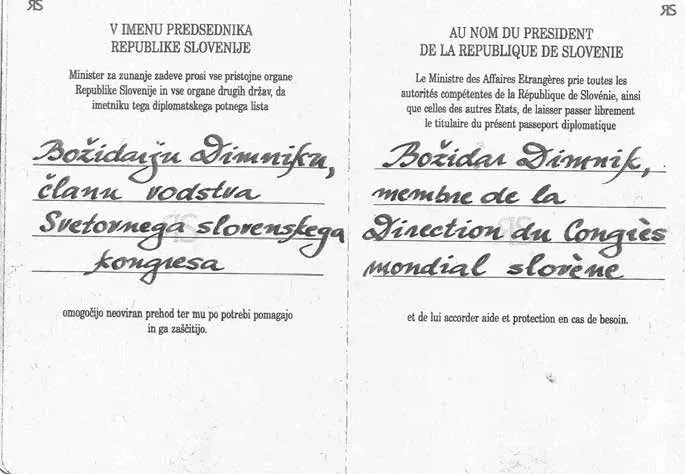 ЯS
V IMENU PREDSEDNIKA
REPUBLIKE SLOVENIJE
Minister za zunanje zadeve prosi vse pristojne organe
Republike Slovenije in vse organe drugih držav, da
imetniku tega diplomatskega potnega lista
Božidarju Dimniku,
članu vodstva
Svetovnega slovenskega
kongresa
omogočijo neoviran prehod ter mu po potrebi pomagajo
in ga zaščitijo.
ЯS
AU NOM DU PRESIDENT
DE LA REPUBLIQUE DE SLOVENIE
Le Ministre des Affaires Etrangères prie toutes les
autorités compétentes de la République de Slovénie, ainsi
que celles des autres Etats, de laisser passer librement
le titulaire du présent passeport diplomatique
Božidar Dimnik,
membre de la
Direction du Congrès
mondial slovène
et de lui accorder aide et protection en cas de besoin.